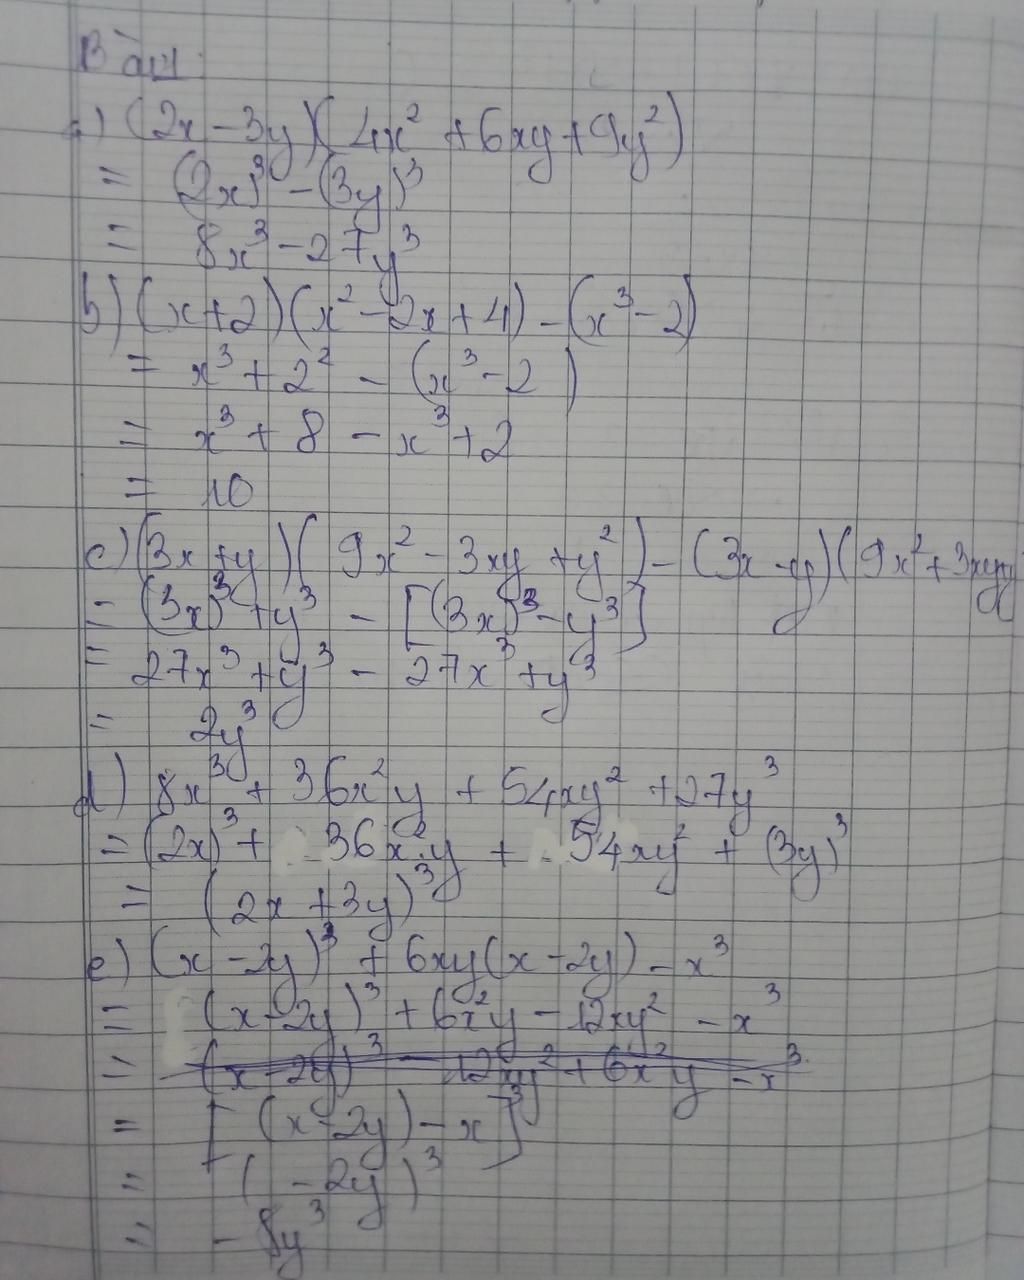 Bài 1
a) (2x - 3y)(4x² + 6xy + 9y²)
= (2x)³ - (3y)³
= 8x³ - 27y³
b) (x + 2)(x² - 2x + 4) - (x³ - 2)
= x³ + 2² - (x³ - 2)
= x³ + 8 - x³ + 2
= 10
c) (3x + y)(9x² - 3xy + y²) - (3x - y)(9x² + 3xy + y²
= (3x)³ + y³ - [(3x)³ - y³]
= 27x³ + y³ - 27x³ + y³
= 2y³
d) 8x³ + 36x²y + 54xy² + 27y³
= (2x)³ + 36x²y + 54xy² + (3y)³
= (2x + 3y)³
e) (x - 2y)³ + 6xy(x - 2y) - x³
= (x - 2y)³ + 6x²y - 12xy² - x³
= (x - 2y)³ - 12xy² + 6x²y - x³
= [(x - 2y) - x]³
= (-2y)³
= -8y³